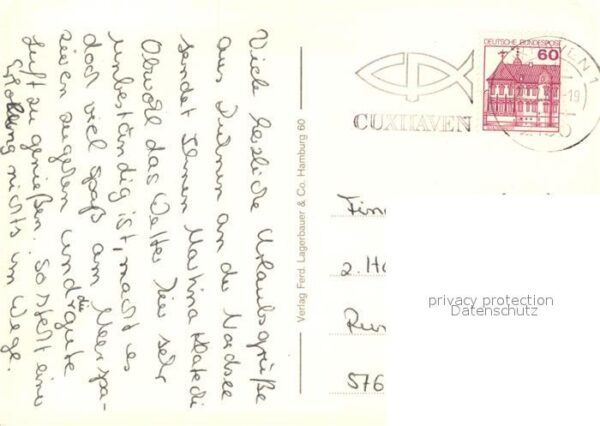 Viele herzliche Urlaubsgrüße
aus Duhnen an der Nordsee
sendet Ihnen Martina
Obwohl das Wetter hier sehr
unbeständig ist, macht es
doch viel Spaß am Meer spa-
zieren zu gehen und die gute
Luft zu genießen. So steht einer
Erholung nichts im Wege.
Verlag Ferd. Lagerbauer & Co. Hamburg 60
CUXHAVEN
DEUTSCHE BUNDESPOST
60
VEN 1
-19
2. Ha
576
privacy protection
Datenschutz